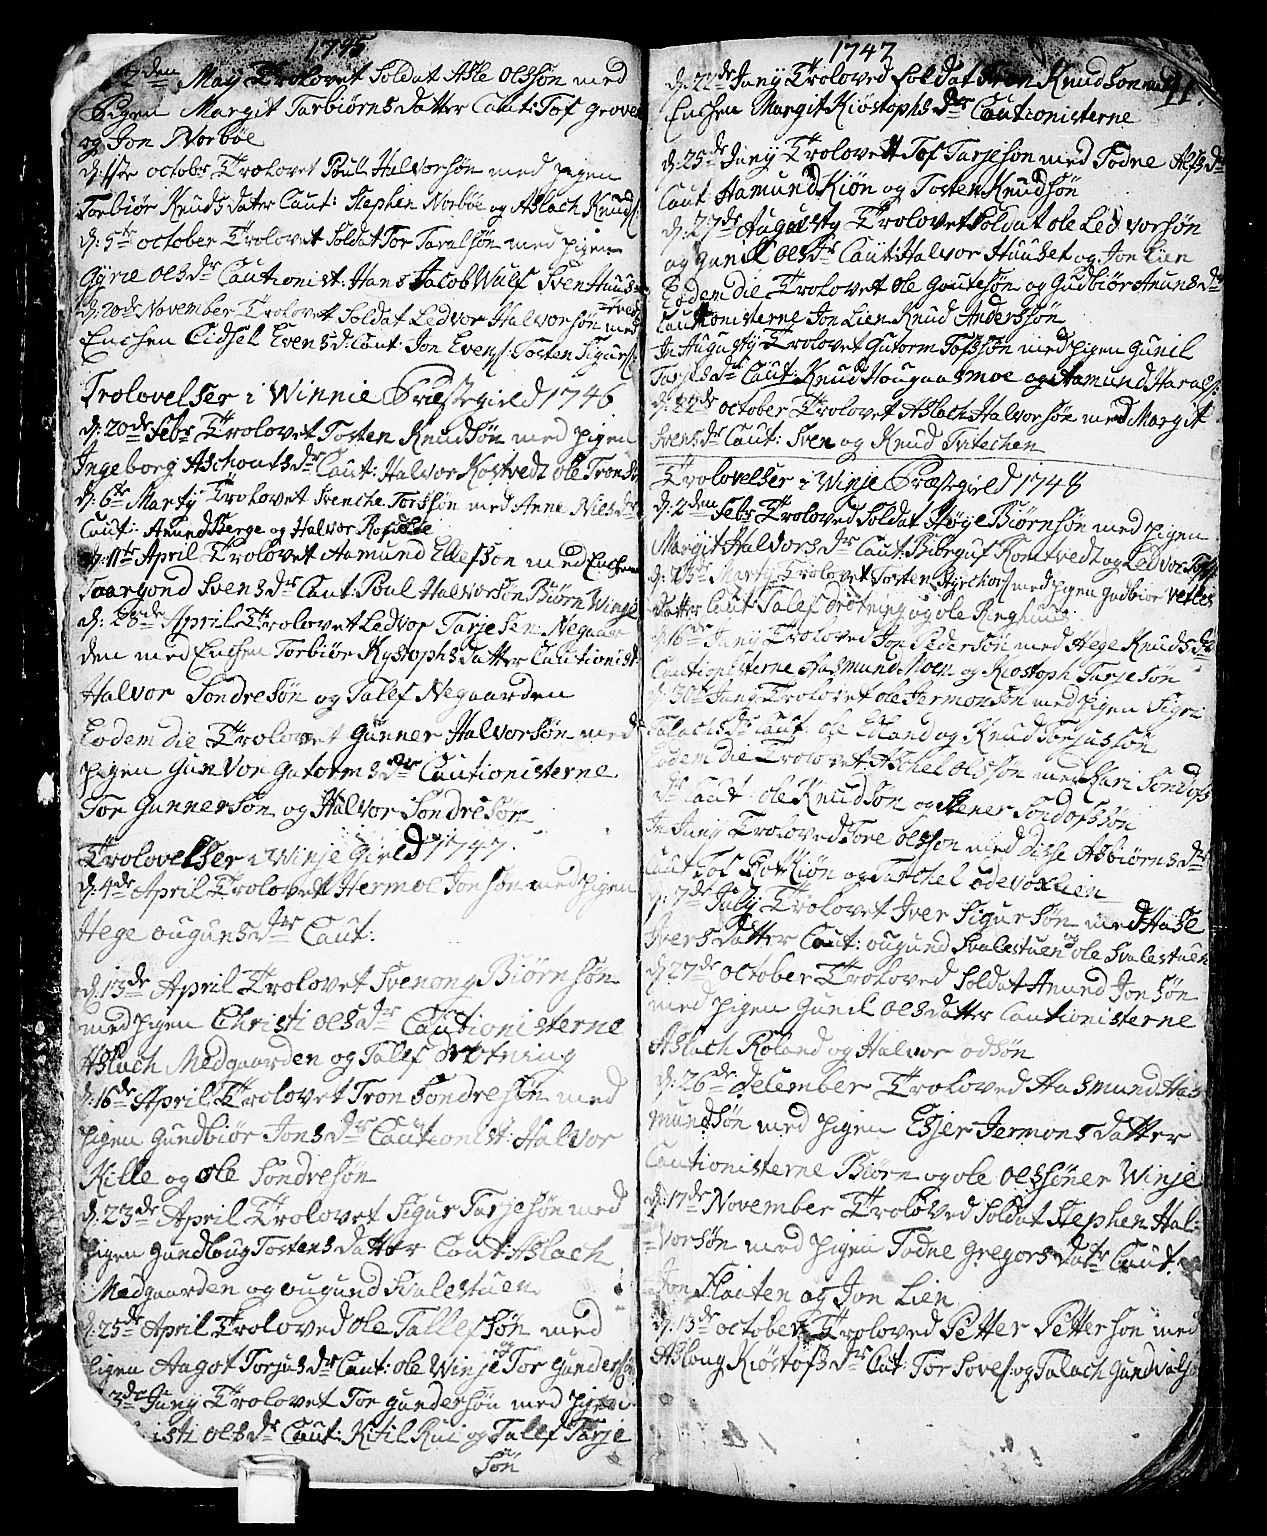 1745
2den May Trolovet Soldat Asle Olssøn med
Pigen Margit Tarbiørns Datter Caut: Tof Groven
og Jon Norbøe
d: 1ste octobr Trolovet Poul Halvorsøn med pigen
Torbiør Knuds Dater Caut: Stephen Norbøe og Aslach Knuds
d: 5te october Trolovet Soldat Tor Taralsøn med pigen
Gyrie Ols dr Cautionist: Hans Jacob Wulf Sven Huus
d: 20de November Trolovet Soldat Ledvor Halvorsøn med
Enchen Cidsel Evens d: Caut: Jon Evens: Tosten Sigurs:
Trolovelser i Winnie Præstegield 1746
d: 20de Febr Trolovet Tosten Knudsøn med pigen
Ingeborg Aschouts dr Caut: Halvor Kostvedt ole Trons
d: 6te Marty Trolovet Svenche Torssøn med Anne Niels dr
Caut: Amund Berge og Halvor
d: 11te April Trolovet Aamund Ellefsøn med Enchen
Taargond Svens dr Caut: Poul Halvorsøn Biørn Winje
d: 28de April Trolovet Ledvor Tarjesen Negaar
den med Enchen Torbiør Kystophs datter Cautionist
Halvor Sondresøn og Talef Negaarden
Eodem die Trolovet Gunner Halvorsøn med
pigen Gunvor Gutorms dr Cautionisterne
Tor Gunnersøn og Halvor Sondresøn
Trolovelser i Winje Gield 1747.
d: 4de April Trolovet Hermoe Jonsøn med pigen
Hege ouguns dr Caut:
d: 13de April Trolovet Svenong Biørnsøn
med pigen Christi Ols dr Cautionisterne
Aslach Medgaarden og Talef Drotning
d: 16de April Trolovet Tron Sondresøn med
pigen Gundbiør Jons dr Cautionist: Halvor
Kille og ole Sondresøn
d: 23de April Trolovet Sigur Tarjesøn med
pigen Gundloug Tostens datter Caut: Aslach
Medgaarden og ougund Svalestuen
d: 25de April Troloved ole Tallefsøn med
pigen Aagot Torjus dr Caut: ole Winje og Tor Gunders
3de Juny Trolovet Tor Gundersøn med pigen
isti Ols dr Caut: Kitil Rui og Talef Tarje
søn
1747
11.
d: 22de Juny Troloved Soldat Knudsøn med
Enchen Margit Kiøstophs dr Cautionisterne
d: 25de Juny Trolovet Tof Tarjesøn med Todne Alfs dr
Caut Aamund Kiøn og Tosten Knudsøn
d: 27de Augusty Trolovet Soldat ole Ledvorsøn
og Gunil Ols dr Caut: Halvor Huuset og Jon Lien
Eodem die Trolovet ole Goutesøn og Gudbiør Anuns dr
Cautionisterne Jon Lien Knud Anderssøn
In Augusty Trolovet Gutorm Tofssøn med pigen Gunil
Tarjes dr Caut: Knud Hougaasmoe og Aamund Harals:
d: 22de october Trolovet Aslach Halvorsøn med Margit
Svens dr Caut: Sven og Knud Tvitechen
Trolovelser i Winje Præstegield 1748
d: 2den Febr Troloved Soldat Høye Biørnsøn med pigen
Margit Halvors dr Caut: Birguf Romtvedt og Ledvor
d: 25de Marty Trolovet Tosten med pigen Gudbior Vetles
datter Caut: Talef Drotning og ole
d: 16de Juny Troloved Jon Pedersøn med Hege Knuds dr
Cautionisterne Aasmund Moen og Kiostoph Tarjesøn
d: 30te Juny Trolovet ole Hermonsøn med pigen Sigri
Talachs dr Caut: ole Edland og Knud Torjussøn
Eodem die Trolovet Aschel Olssøn med Kari Sondofs
dr Caut: ole Knudsøn og Sondofssøn
In Juny Troloved Tore Olssøn med Disse Asbiørns dr
Caut Tof Rotkiøn og Tarchel
d: 7de July Trolovet Iver Sigursøn med Aase
Ivers datter Caut: ougund Svalestuen og ole Svalestuen
d: 27de october Troloved Soldat Anund Jonsøn
med pigen Gunil Ols datter Cautionisterne
Aslach Roland og Halvor odsøn
d: 26de december Troloved Aasmund Aas
mundsøn med pigen Esjer Jermons datter
Cautionisterne Biørn og ole olssøner Winje
d: 17de November Troloved Soldat Stephen Hal-
vorsøn med pigen Todne Gregors datr Caut.
Jon Flaaten og Jon Lien
d: 13de october Troloved Petter Pettersøn med
Aslaug Kiøstofs dr Caut: Tor Loves: og Talach Gundvals